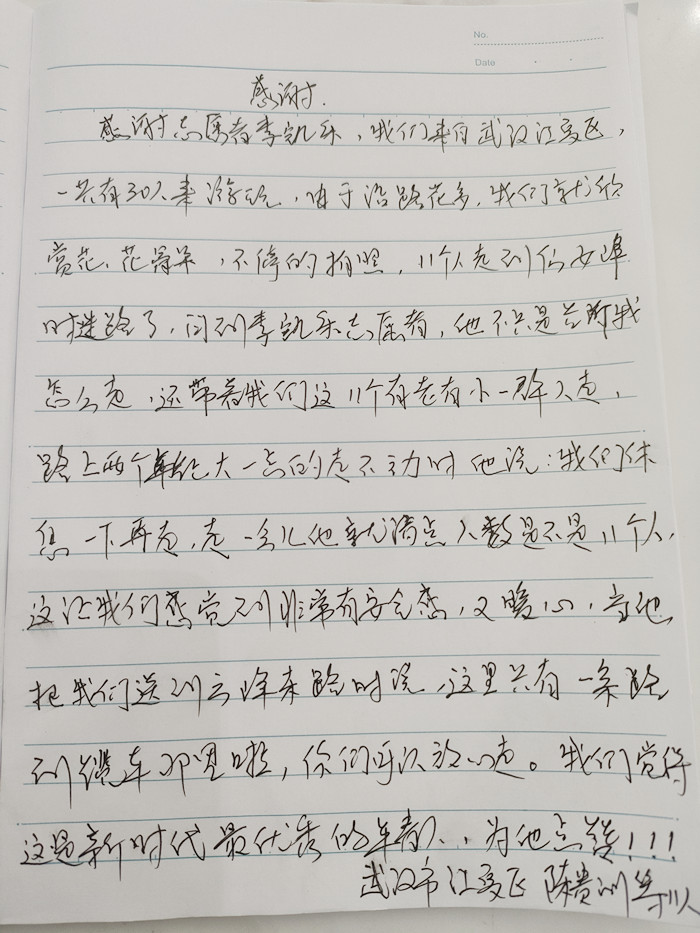 No.
Date
感谢
感谢志愿者李凯乐，我们来自武汉江夏区，
一共有30人来游玩，由于沿路花多，我们就欣
赏花、花骨朵，不停的拍照，11个人走到仙女峰
时迷路了，问到李凯乐志愿者，他不只是告所我
怎么走，还带着我们这11个有老有小一群人走，
路上两个年纪大一点的走不动时他说：我们休
息一下再走，走一会儿他就清点人数是不是11个人，
这让我们感觉到非常有安全感，又暖心，当他
把我们送到云峰来路时说，这里只有一条路
到缆车那里啦，你们可以放心走。我们觉得
这是新时代最优秀的年青人..为他点赞！！！
武汉市江夏区 陈贵训等11人